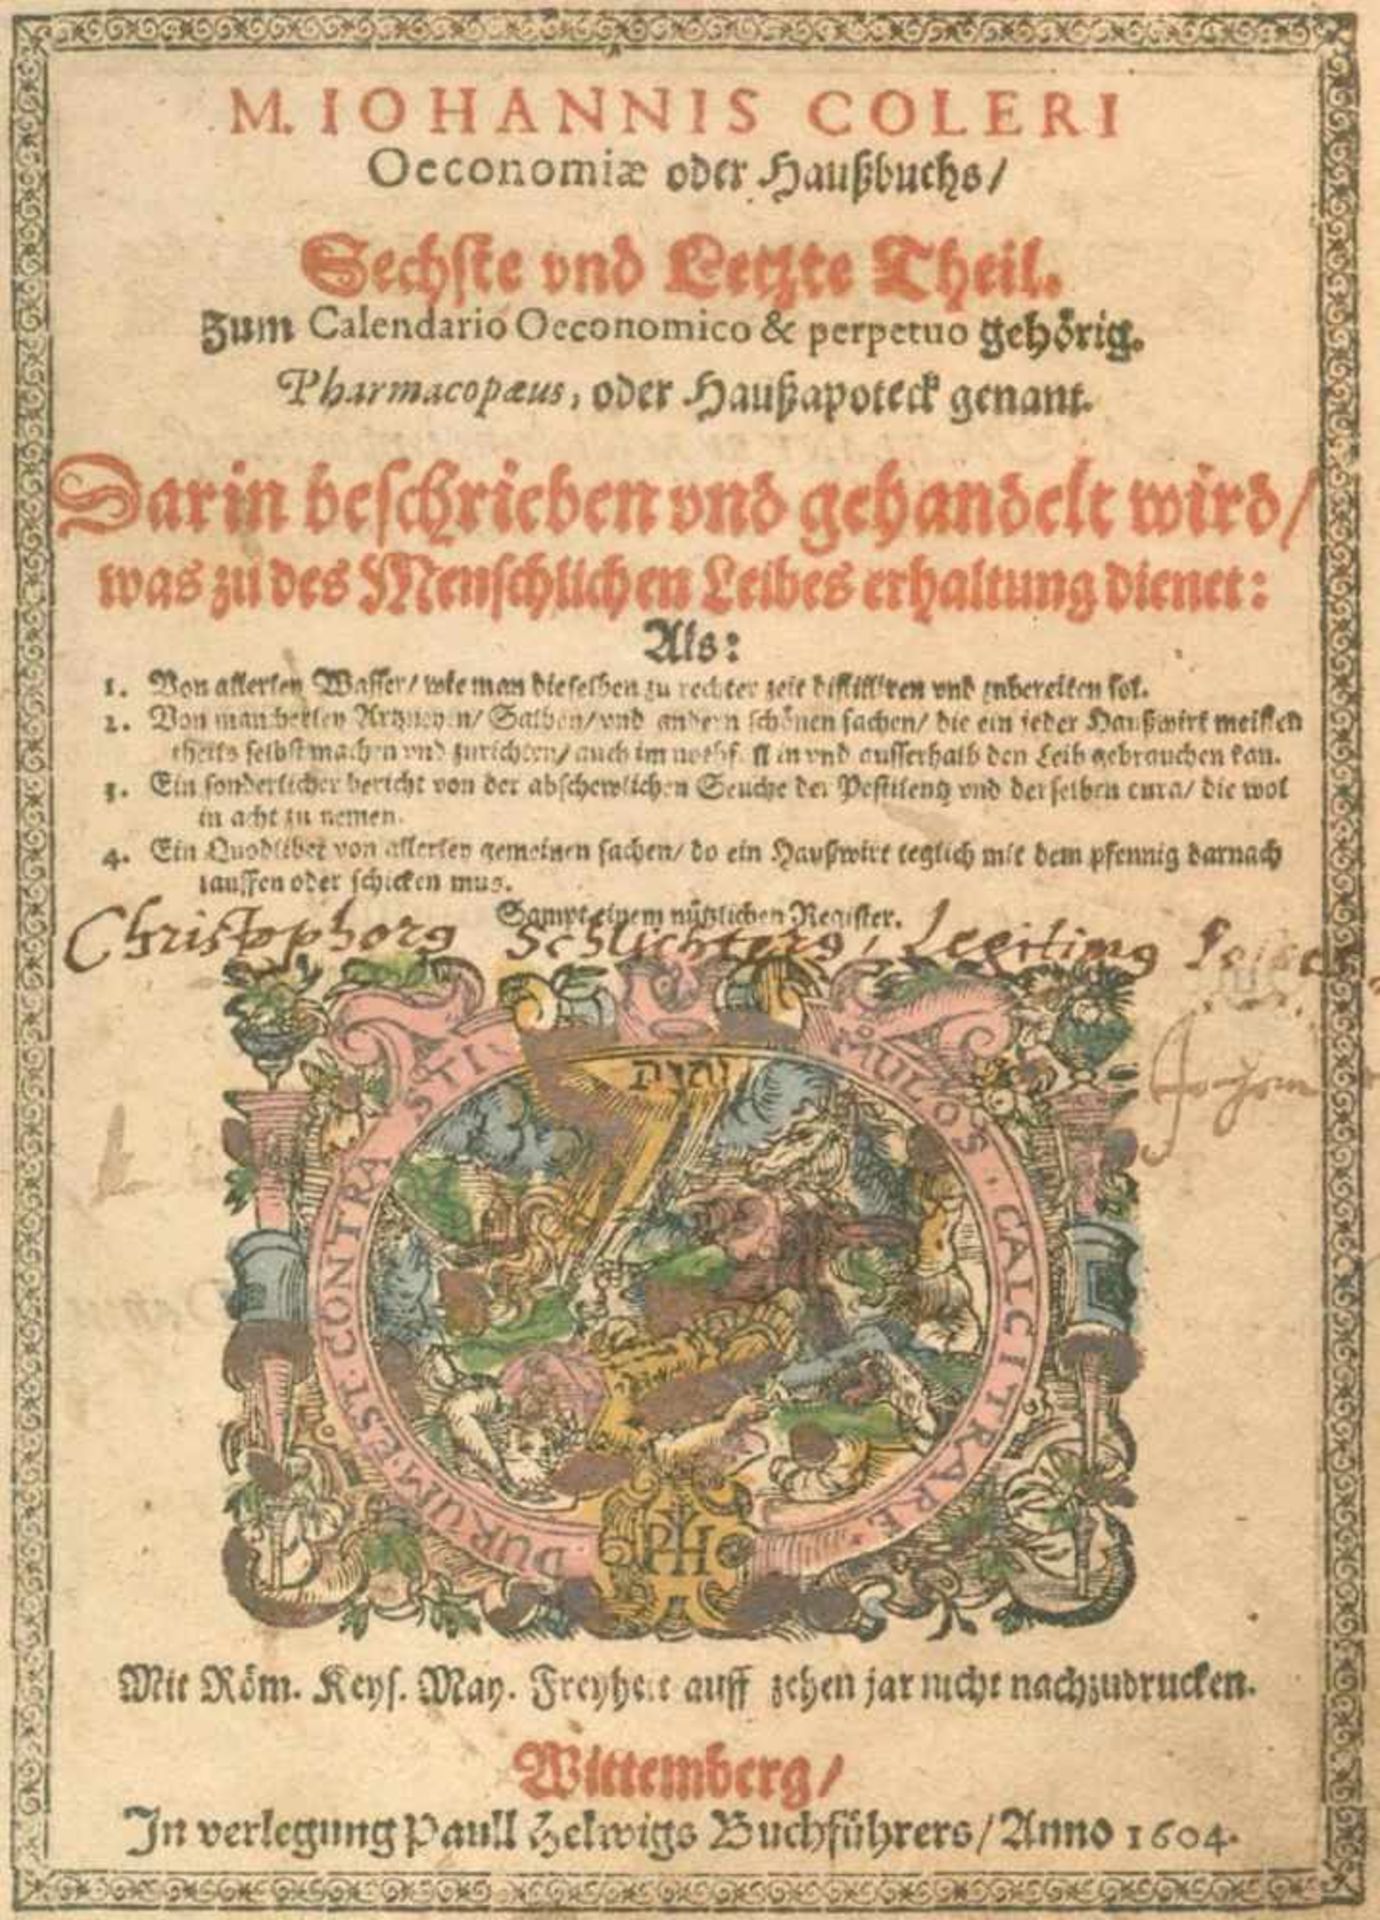 M. IOHANNIS COLERI
Oeconomiæ oder Haußbuchs/
Sechste vnd Letzte Theil.
Zum Calendario Oeconomico & perpetuo gehörig.
Pharmacopæus, oder Haußapoteck genant.
Darin beschrieben vnd gehandelt wird/
was zu des Menschlichen Leibes erhaltung dienet:
Als:
1. Von allerley Wasser/ wie man dieselben zu rechter zeit distilliren vnd zubereiten sol.
2. Von mancherley Artzneyen/ Salben/ vnd andern schönen sachen/ die ein jeder Haußwirt meisten
theils selbst machen vnd zurichten/ auch im nothfall in vnd ausserhalb den Leib gebrauchen kan.
3. Ein sonderlicher bericht von der abschewlichen Seuche der Pestilentz vnd derselben cura/ die wol
in acht zu nemen.
4. Ein Quodlibet von allerley gemeinen sachen/ do ein Haußwirt teglich mit dem pfennig darnach
lauffen oder schicken mus.
Sampt einem nützlichen Register.
Christophorg Schlichterg, Legitimg
DURUM. EST. CONTRA STI MULOS. CALCITRARE.
Mit Röm. Keys. May. Freyheit auff zehen jar nicht nachzudrucken.
Wittemberg/
In verlegung Paull Helwigs Buchführers/ Anno 1604.